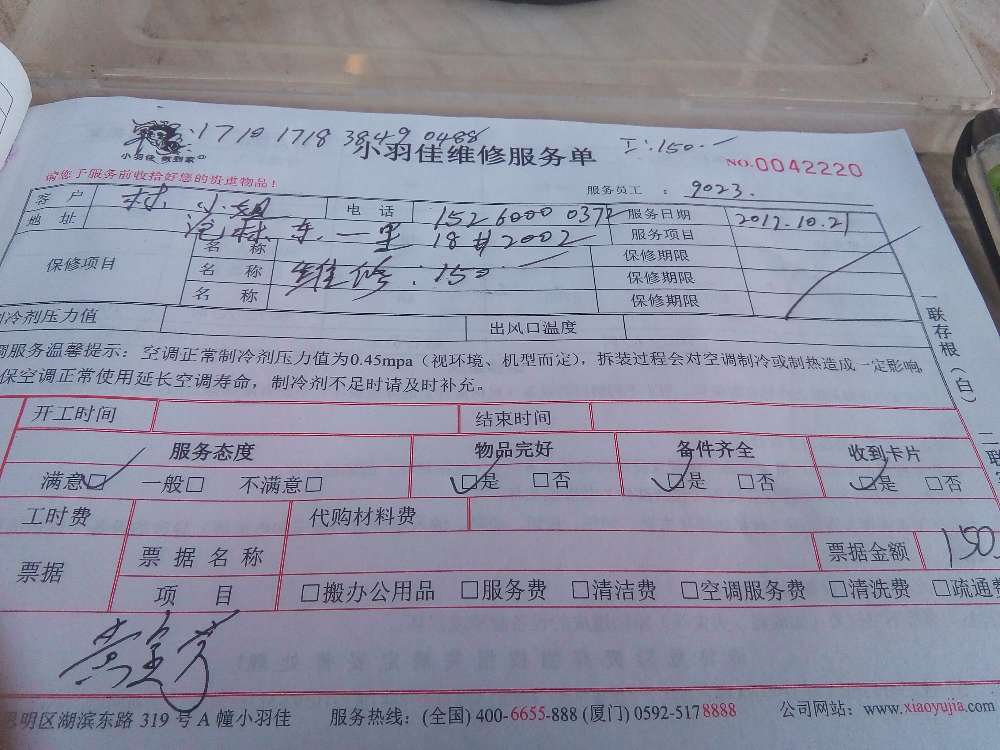 1710 1718 3849 0488
小羽佳 做到家
小羽佳维修服务单
I:150.-
NO.0042220
请您于服务前收拾好您的贵重物品！
服务员工 : 9023.
客户 林小姐 电话 1526000 0372 服务日期 2017.10.21
地址 东一里18#2002 服务项目
保修项目 名称 保修期限
名称 维修:150 保修期限
名称 保修期限
冷剂压力值 出风口温度
调服务温馨提示：空调正常制冷剂压力值为0.45mpa（视环境、机型而定），拆装过程会对空调制冷或制热造成一定影响,
保空调正常使用延长空调寿命，制冷剂不足时请及时补充。
一联存根（白）
二联
开工时间 结束时间
服务态度 物品完好 备件齐全 收到卡片
满意□ 一般□ 不满意□ □是 □否 □是 □否 □是 □否
工时费 代购材料费
票据 票据名称 票据金额 150
项目 □搬办公用品 □服务费 □清洁费 □空调服务费 □清洗费 □疏通费
思明区湖滨东路 319 号 A 幢小羽佳 服务热线：(全国) 400-6655-888 (厦门) 0592-5178888 公司网站：www.xiaoyujia.com